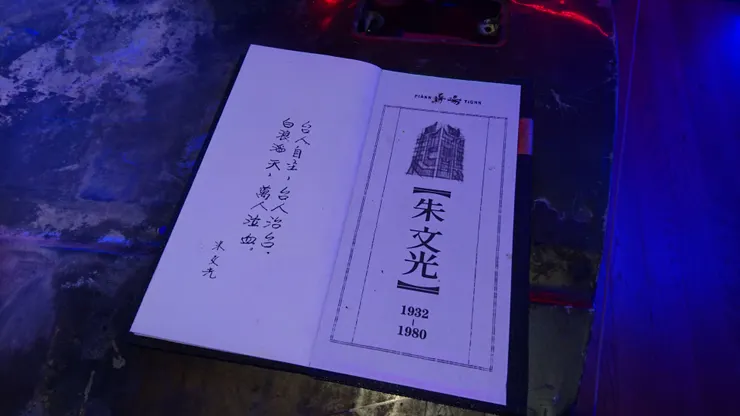 【朱文光】
1932
-
1980
台人自主，台人治台．
白浪滔天，萬人泣血．
朱文光